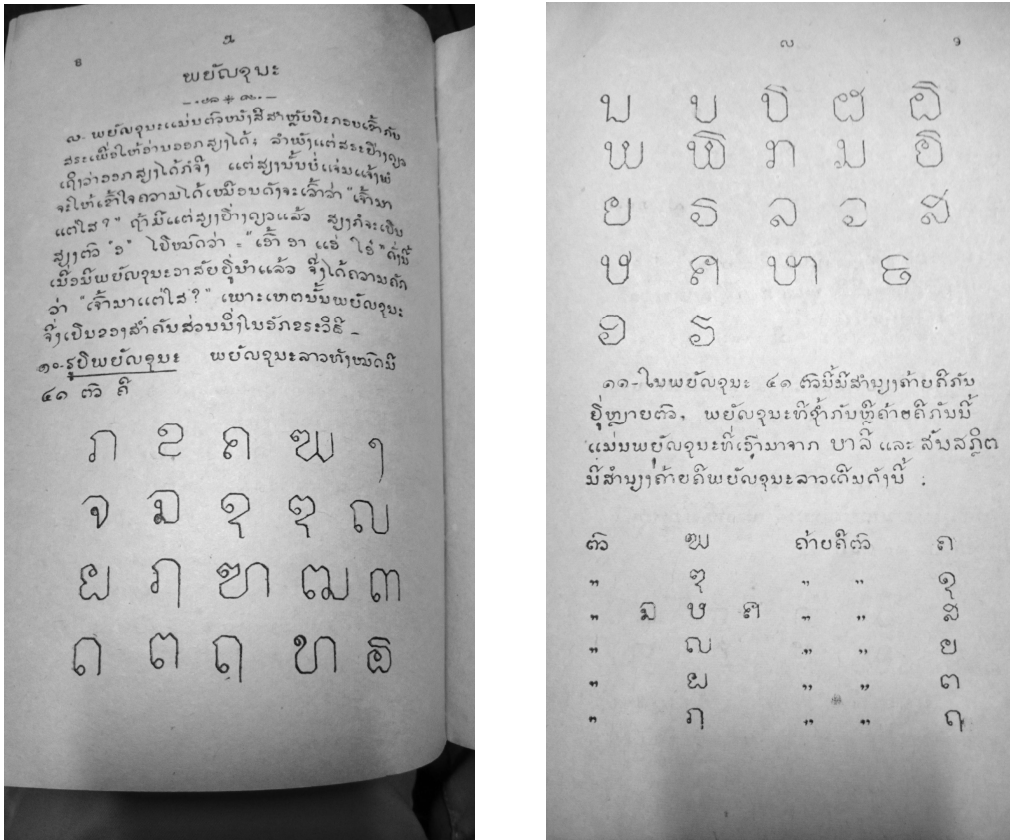 ໘
ພຍັຎຊນະ
໙- ພຍັຎຊນະແມ່ນຕົວໜັງສືສາຫຼັບປະກອບເຂົ້າກັບ
ສຣະເພື່ອໃຫ້ອ່ານອອກສຽງໄດ້; ລຳພັງແຕ່ສຣະຢ່າງດຽວ
ເຖິງວ່າອອກສຽງໄດ້ກໍຈິງ ແຕ່ສຽງນັ້ນບໍ່ແຈ່ມແຈ້ງພໍ
ຈະໃຫ້ເຂົ້າໃຈຄວາມໄດ້ເໝືອນດັ່ງຈະເວົ້າວ່າ "ເຈົ້າມາ
ແຕ່ໃສ?" ຖ້າມີແຕ່ສຽງຢ່າງດຽວແລ້ວ ສຽງກໍຈະເປັນ
ສຽງຕົວ "ອ" ໄປໝົດວ່າ = "ເອົ້າ ອາ ແອ່ ໄອ໋" ດັ່ງນີ້
ເມື່ອມີພຍັຎຊນະອາສັຍຢູ່ນຳແລ້ວ ຈຶ່ງໄດ້ຄວາມຄັກ
ວ່າ "ເຈົ້າມາແຕ່ໃສ?" ເພາະເຫດນັ້ນພຍັຎຊນະ
ຈຶ່ງເປັນຂອງສຳຄັນສ່ວນນຶ່ງໃນອັກຂຣະວິທີ -
໑໐-ຮູບພຍັຎຊນະ ພຍັຎຊນະລາວທັງໝົດມີ
໔໑ ຕົວ ຄື
ກ ຂ ຄ ຆ ງ
ຈ ຉ ຊ ຌ ຎ
ຏ ຐ ຑ ຒ ຓ
ດ ຕ ຖ ທ ຘ
໙
ນ ບ ປ ຜ ຝ
ພ ຟ ຠ ມ ຢ
ຍ ຣ ລ ວ ສ
ຩ ຨ ຫ ຬ
ອ ຮ
໑໑-ໃນພຍັຎຊນະ ໔໑ ຕົວນີ້ມີສຳນຽງຄ້າຍຄືກັນ
ຢູ່ຫຼາຍຕົວ, ພຍັຎຊນະທີ່ຊ້ຳກັນຫຼືຄ້າຍຄືກັນນີ້
ແມ່ນພຍັຎຊນະທີ່ເອົາມາຈາກ ບາລີ ແລະ ສັນສກຼິຕ
ມີສຳນຽງຄ້າຍຄືພຍັຎຊນະລາວເດີມດັ່ງນີ້ :
ຕົວ ຆ ຄ້າຍຄືຕົວ ຄ
" ຌ " " ຊ
" ຉ ຩ ຨ " " ສ
" ຎ " " ຍ
" ຏ " " ຕ
" ຐ " " ຖ